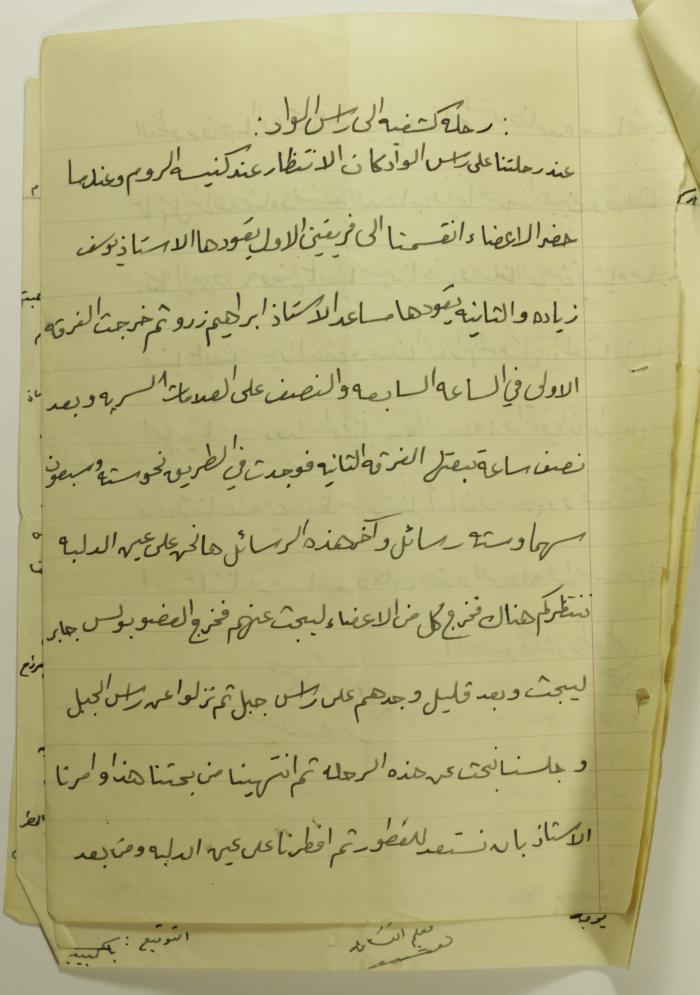 : رحلة كشفيه الى راس الواد :
عند رحلتنا على راس الواد كان الانتظار عند كنيسه الروم وعندما
حضر الاعضاء انقسمنا الى فريقين الاول يقودها الاستاذ يوسف
زياده والثانيه يقودها مساعد الاستاذ ابراهيم زرو ثم خرجت الفرقه
الاولى في الساعه السابعه والنصف على العلامات السريه وبعد
نصف ساعة تبعتها الفرقه الثانيه فوجدت في الطريق نحو سته وسبعون
سهما وسته رسائل وآخر هذه الرسائل ها نحن على عين الدلبه
ننتظركم هناك فخرج كل من الاعضاء ليبحث عنهم فخرج العضو بولس جابر
ليبحث وبعد قليل وجدهم على راس جبل ثم نزلوا عن راس الجبل
وجلسنا نبحث عن هذه الرحله ثم انتهينا من بحثنا هذا وامرنا
الاستاذ بان نستعد للفطور ثم افطرنا على عين الدلبه ومن بعد
التوقيع :